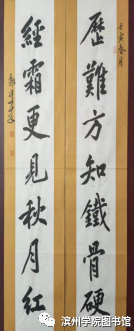 歷難方知鐵骨硬
經霜更見秋月紅
滨州学院图书馆